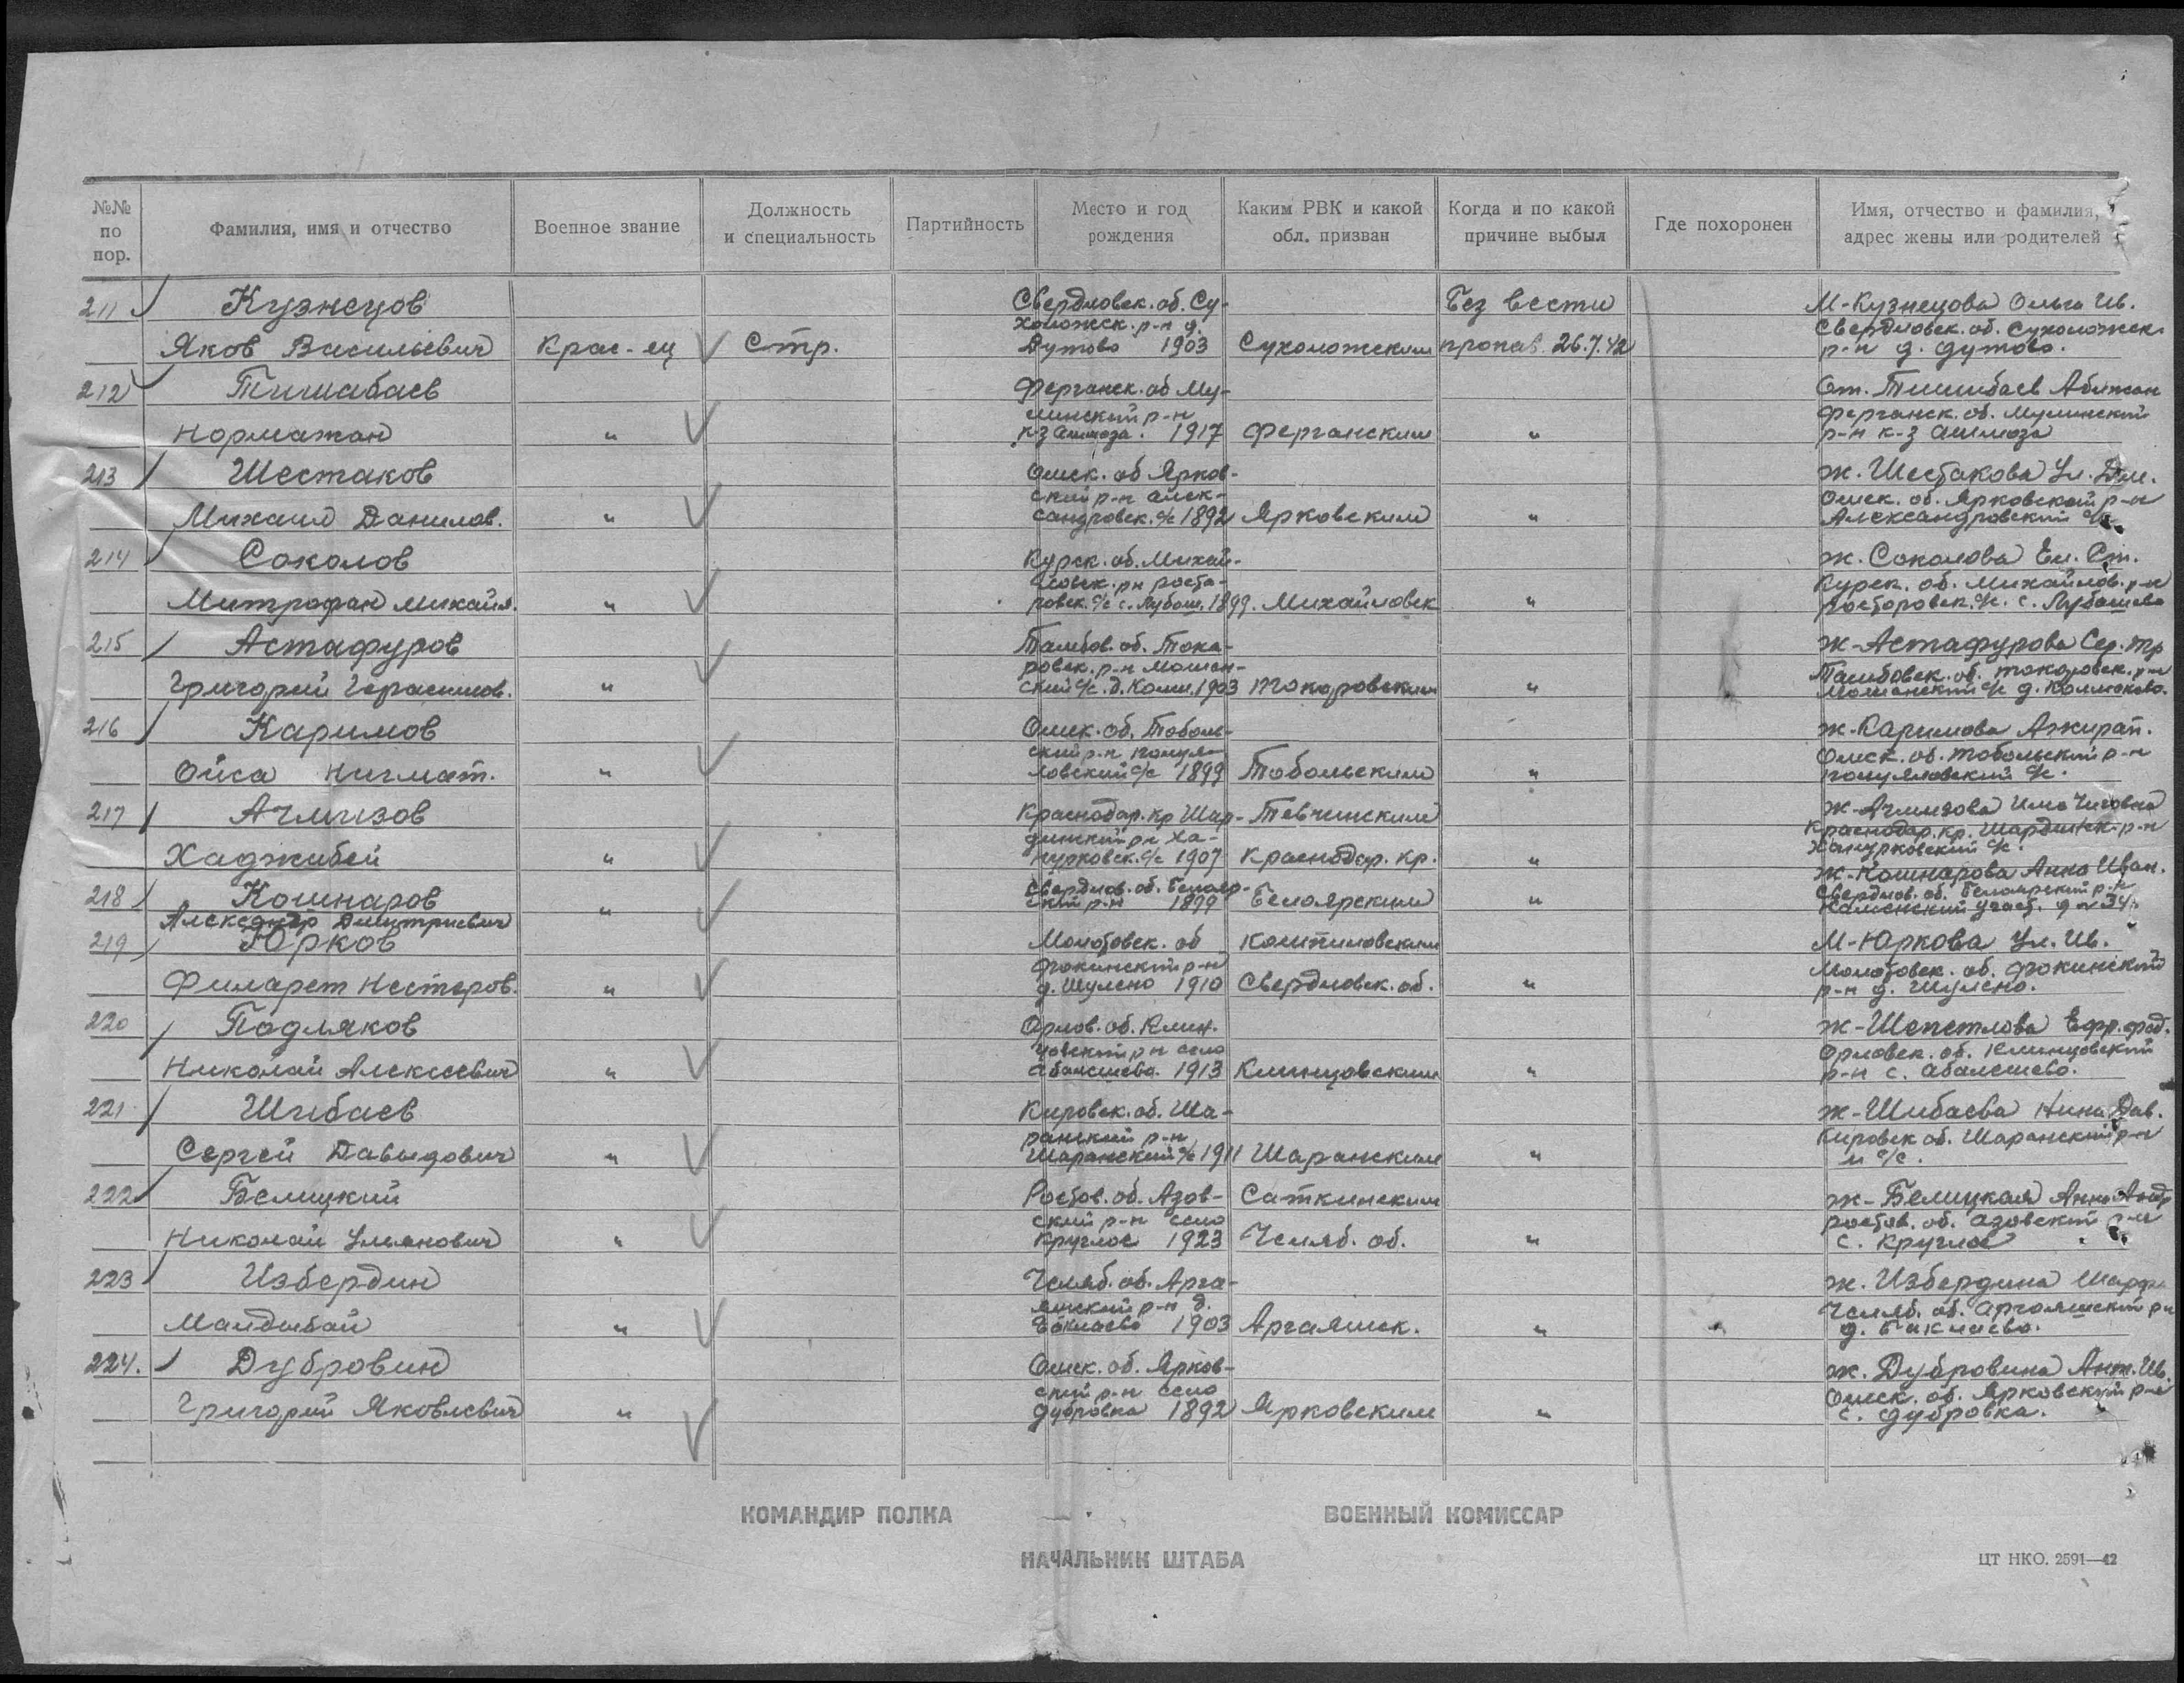 №№ по пор.
Фамилия, имя и отчество
Военное звание
Должность и специальность
Партийность
Место и год рождения
Каким РВК и какой обл. призван
Когда и по какой причине выбыл
Где похоронен
Имя, отчество и фамилия, адрес жены или родителей
211 Кузнецов Свердловск. об. Су- Без вести М-Кузнецова Ольга Ив.
холожск. р-н д. Свердловск. об. Сухоложск.
Яков Васильевич Крас-ец Стр. Дутово 1903 Сухоложским пропав. 26.7.42 р-н д. Дутово.
212 Тишабаев Ферганск. об Му- От. Тишибаев Абижан
р-н Ферганск. об.
Нормажан " к-з 1917 Ферганским " р-н к-з
213 Шестаков Омск. об Ярков- ж. Шестакова Ул. Дм.
ский р-н Алек- Омск. об. Ярковский р-н
Михаил Данилов. " сандровск. с/с 1892 Ярковским " Александровский с/с
214 Соколов Курск. об. Михай- ж. Соколова Ел. Ст.
ловск. рн Роста- Курск. об. Михайлов. р-н
Митрофан Михайл. " ровск. с/с с. Лубош. 1899. Михайловск " Ростаровск. с/с. с. Лубошево
215 Астафуров Тамбов. об. Тока- ж-Астафурова Сер. Тр
ровск. р-н Мошен- Тамбовск. об. Токаровск. р-н
Григорий Герасимов. " ский с/с. д. Колм. 1903 Токаровским " Мошенский с/с д. Колмаково.
216 Каримов Омск. об. Тоболь- ж-Каримова Ажирап.
ский р-н Омск. об. Тобольский р-н
Ойса Нигмат. " ловский с/с 1899 Тобольским " с/с.
217 Ачмизов Краснодар. кр Шар- Тевчинским ж-Ачмизова Има Чиговна
динский рн Ха- Краснодар. кр. Шардинск. р-н
Хаджибей " нурковск. с/с 1907 Краснодар. кр. " Ханурковский с/с.
218 Кошнаров Свердлов. об. Белояр- Белоярским " ж-Кошнарова Анна Иван.
Александр Дмитриевич " ский р-н 1899 Свердлов. об. Белоярский р-н
Каменский участ. д № 34
219 Юрков Молотовск. об М-Юркова Ул. Ив.
Фокинский р-н Молотовск. об. Фокинский
Филарет Нестеров. " д. Шулено 1910 Свердловск. об. " р-н д. Шулено.
220 Подляков Орлов. об. Клин- ж-Шепетлова Ефр. Фед.
цовский р-н село Орловск. об. Клинцовский
Николай Алексеевич " Абалешево. 1913 Клинцовским " р-н с. Абалешево.
221 Шибаев Кировск. об. Ша- ж-Шибаева Нина Дав.
ранский р-н Кировск об. Шаранский р-н
Сергей Давыдович " Шаранский с/с 1911 Шаранским " и с/с.
222 Белицкий Ростов. об. Азов- Саткинским ж-Белицкая Анна Андр
ский р-н село Ростов. об. Азовский р-н
Николай Ульянович " Круглое 1923 Челяб. об. " с. Круглое
223 Избердин Челяб. об. Арга- ж. Избердина Шарфи
яшский р-н д. Челяб. об. Аргаяшский рн
Мандыбай " Баклаево 1903 Аргаяшск. " д. Баклаево.
224. Дубровин Омск. об. Ярков- ж. Дубровина Ант. Ив.
ский р-н село Омск. об. Ярковский р-н
Григорий Яковлевич " Дубровка 1892 Ярковским " с. Дубровка.
КОМАНДИР ПОЛКА
ВОЕННЫЙ КОМИССАР
НАЧАЛЬНИК ШТАБА
ЦТ НКО. 2591—42